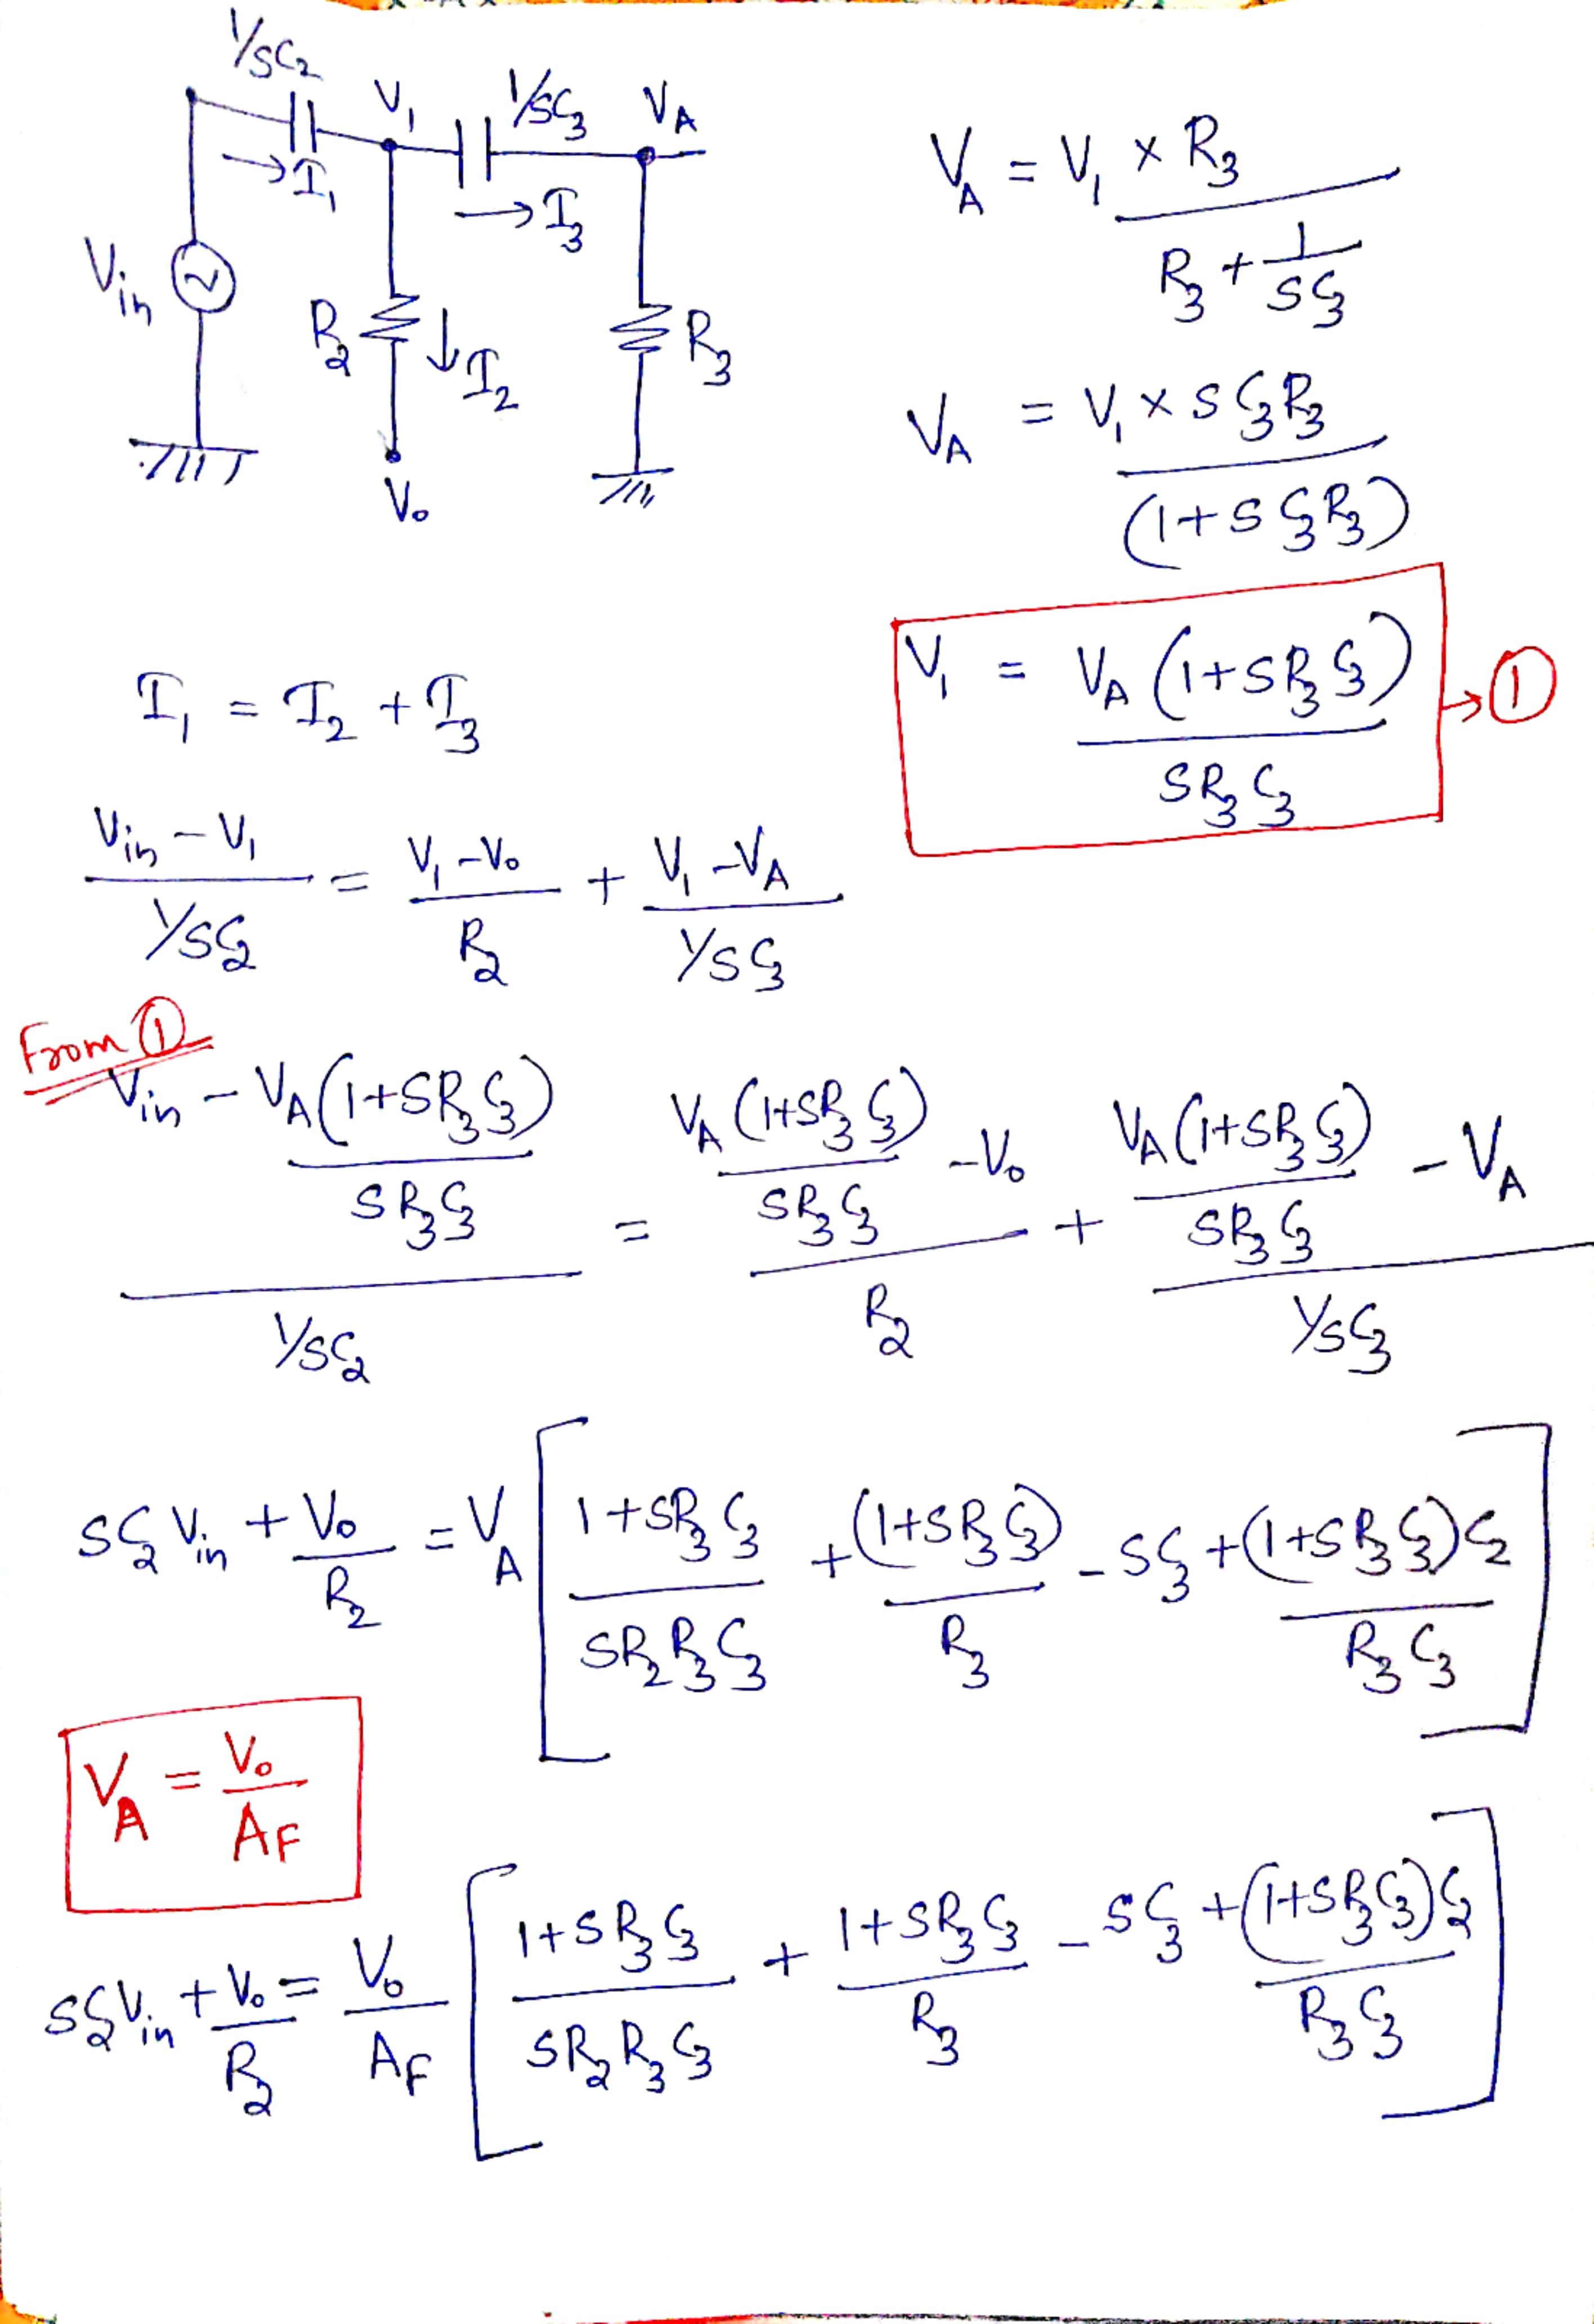 1/SC2
V1 1/SC3 VA
→I1 →I3
Vin R2 ↓I2 R3
Vo
VA = V1 × R3 / (R3 + 1/SC3)
VA = V1 × SC3R3 / (1+SC3R3)
V1 = VA (1+SR3C3) / SR3C3 → ①
I1 = I2 + I3
(Vin - V1) / (1/SC2) = (V1 - Vo) / R2 + (V1 - VA) / (1/SC3)
From ①
(Vin - VA(1+SR3C3) / SR3C3) / (1/SC2) = (VA(1+SR3C3) / SR3C3 - Vo) / R2 + (VA(1+SR3C3) / SR3C3 - VA) / (1/SC3)
SC2 Vin + Vo / R2 = VA [ 1+SR3C3 / SR2R3C3 + (1+SR3C3) / R3 - SC3 + (1+SR3C3)C2 / R3C3 ]
VA = Vo / AF
SC2Vin + Vo / R2 = Vo / AF [ 1+SR3C3 / SR2R3C3 + 1+SR3C3 / R3 - SC3 + (1+SR3C3)C2 / R3C3 ]